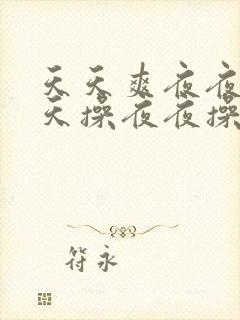 天天爽夜夜
天操夜夜操
符永